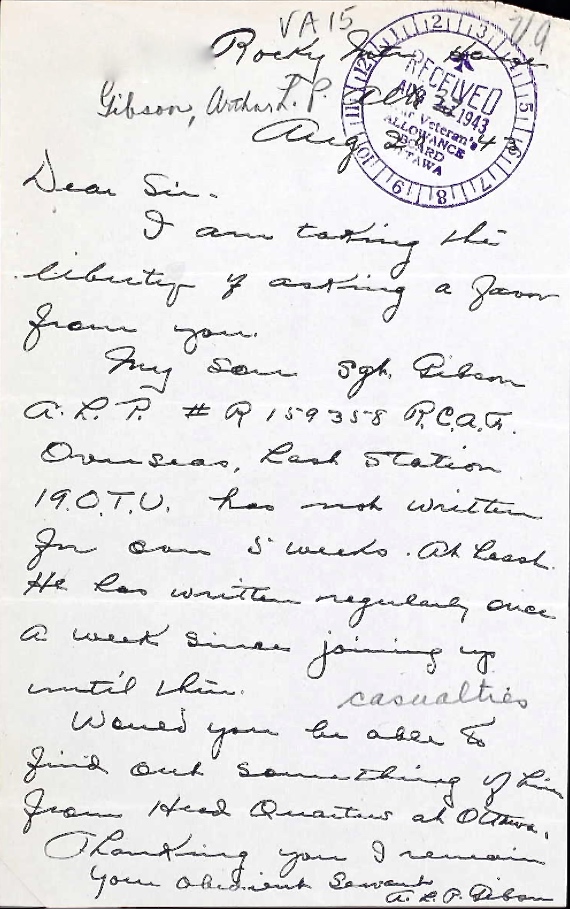 VA15
Rocky Mtn House
Gibson, Arthur L. P.
Alta
Aug 43
RECEIVED
AUG 1943
Veteran's
ALLOWANCE
BOARD
OTTAWA
Dear Sir.
I am taking the
liberty of asking a favor
from you.
My son Sgt. Gibson
A. L. P. # R 159358 R.C.A.F.
Overseas, Last Station
19.O.T.U. has not written
for over 5 weeks. At least.
He has written regularly once
a week since joining up
until then.
casualties
Would you be able to
find out something of him
from Head Quarters at Ottawa.
Thanking you I remain
Your obedient Servant
A. L. P. Gibson